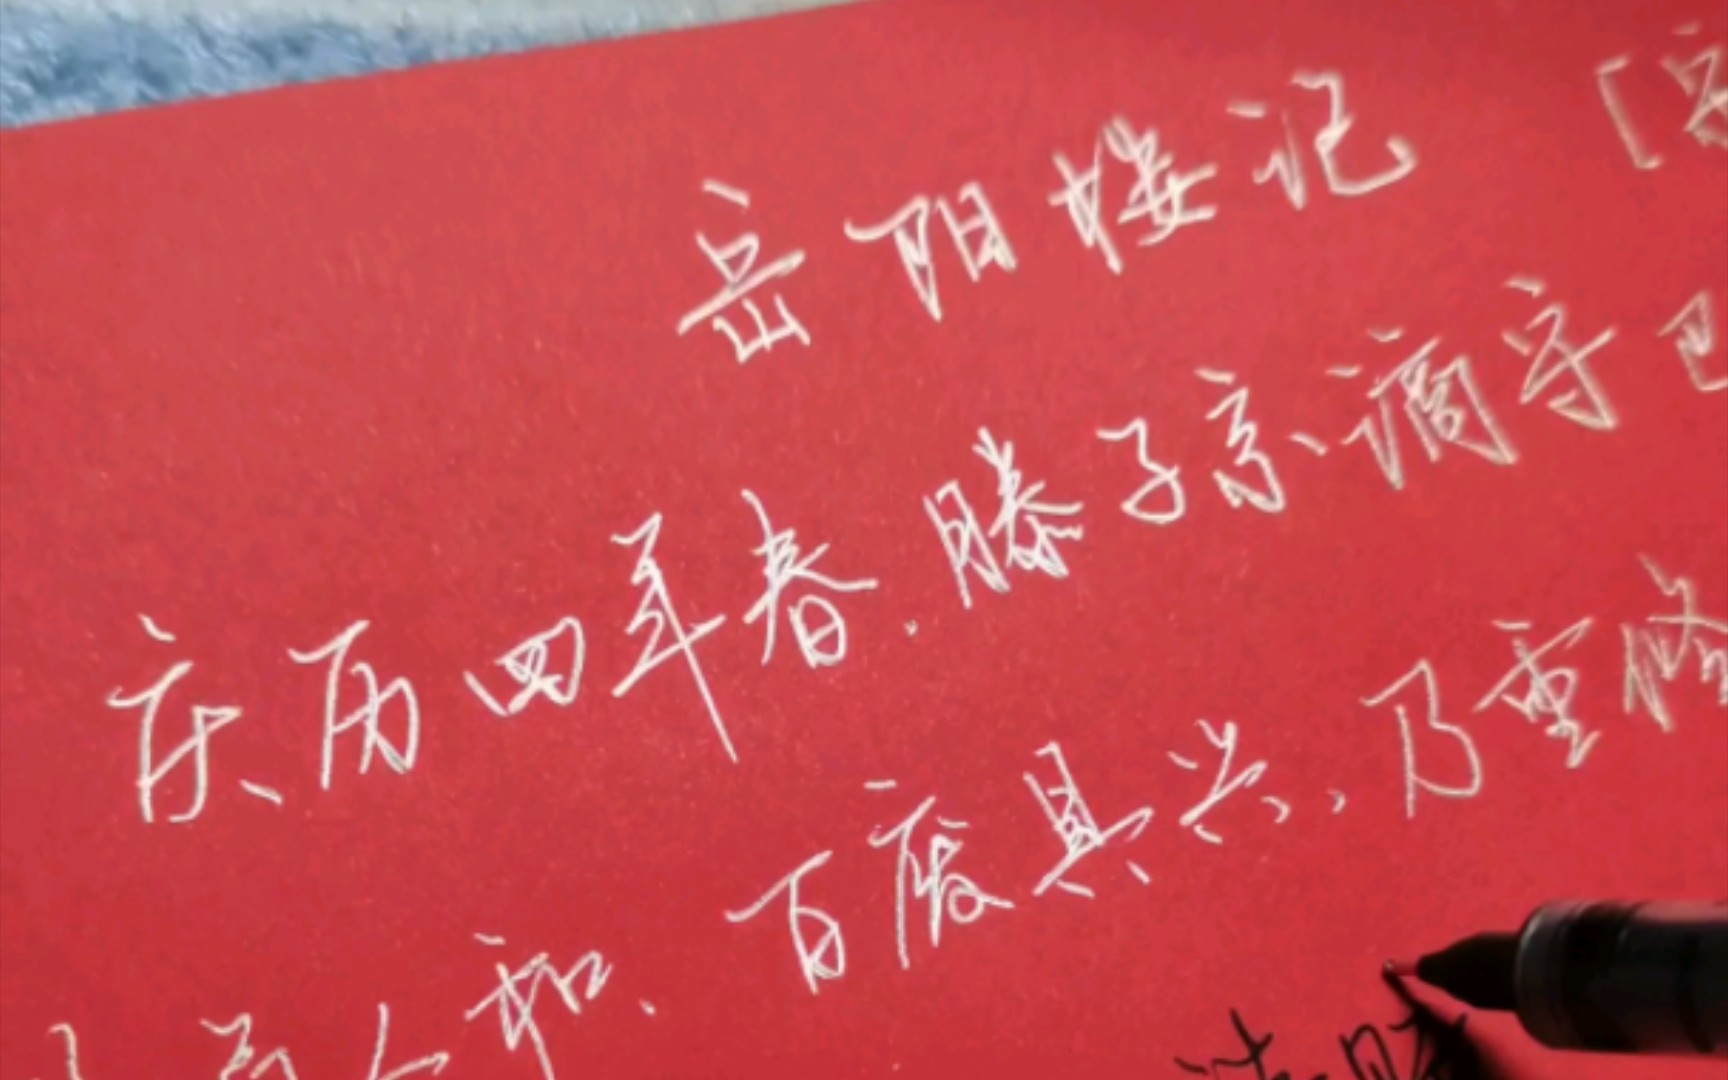 岳阳楼记 [宋
庆历四年春.滕子京谪守巴
人和、百废具兴、乃重修